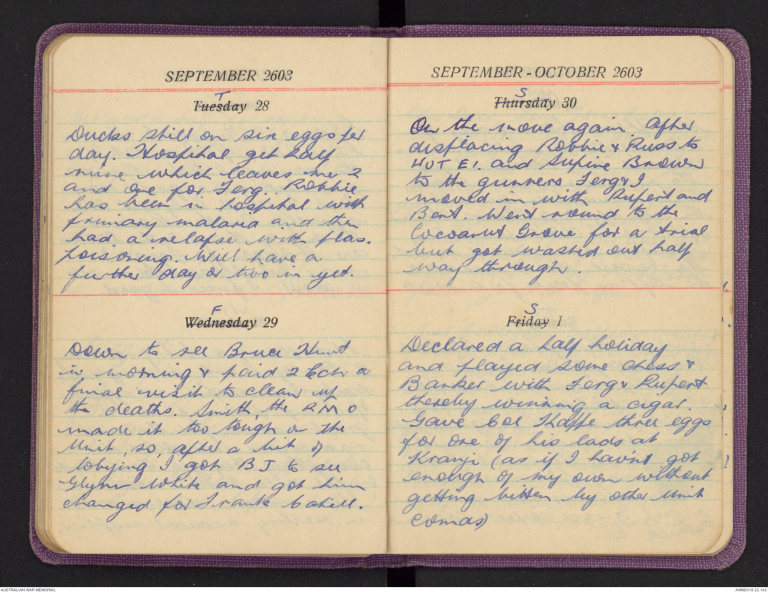 SEPTEMBER 2603
T
Tuesday 28
Ducks still on six eggs per
day. Hospital get half
mine which leaves me 2
and one for Ferg. Robbie
has been in hospital with
primary malaria and then
had a relapse with plas.
poisoning. Will have a
further day or two in yet.
F
Wednesday 29
Down to see Bruce Hunt
in morning & paid 2 Ech a
final visit to clean up
the deaths. Smith, the RMO
made it too tough on the
Unit, so, after a bit of
lobying I got BJ to see
Glynn White and got him
changed for Frank Cahill.
SEPTEMBER - OCTOBER 2603
S
Thursday 30
On the move again. After
displacing Robbie & Russ to
HUT E1. and Supine Brown
to the gunners Ferg & I
moved in with Rupert and
Bert. Went round to the
Cocoanut Grove for a trial
but got washed out half
way through.
S
Friday 1
Declared a half holiday
and played some chess &
Banker with Ferg & Rupert
thereby winning a cigar.
Gave Col Kappe three eggs
for one of his lads at
Kranji (as if I havn't got
enough of my own without
getting bitten by other unit
comds)
AUSTRALIAN WAR MEMORIAL